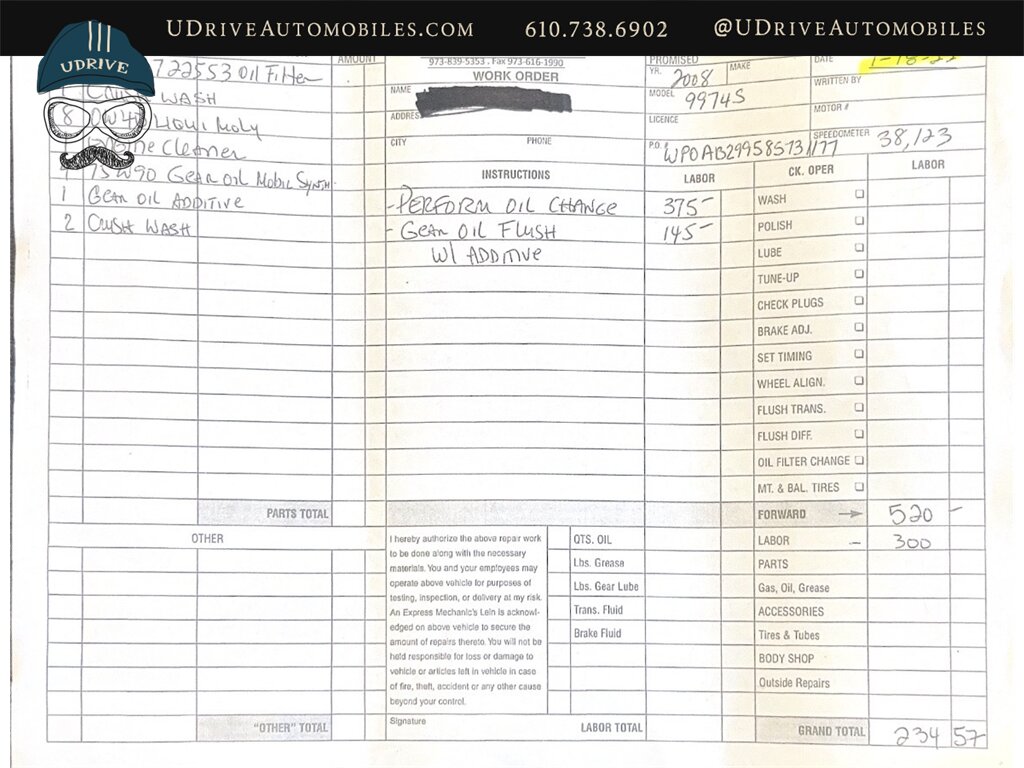 UDRIVEAUTOMOBILES.COM 610.738.6902 @UDRIVEAUTOMOBILES
UDRIVE
AMOUNT
973-839-5353 . Fax 973-616-1990
WORK ORDER
PROMISED
DATE
YR. 2008
MAKE
WRITTEN BY
NAME
MODEL 997 4S
MOTOR #
ADDRESS
LICENCE
CITY PHONE
P.O. #
SPEEDOMETER 38,123
22553 OIL FILTER
WASH
8 LIQUI MOLY
CLEANER
75W90 GEAR OIL MOBIL SYNTH.
1 GEAR OIL ADDITIVE
2 CRUSH WASH
PARTS TOTAL
OTHER
"OTHER" TOTAL
INSTRUCTIONS LABOR
- PERFORM OIL CHANGE 375-
- GEAR OIL FLUSH 145-
W/ ADDITIVE
I hereby authorize the above repair work
to be done along with the necessary
materials. You and your employees may
operate above vehicle for purposes of
testing, inspection, or delivery at my risk.
An Express Mechanic's Lein is acknowl-
edged on above vehicle to secure the
amount of repairs thereto. You will not be
held responsible for loss or damage to
vehicle or articles left in vehicle in case
of fire, theft, accident or any other cause
beyond your control.
Signature
QTS. OIL
Lbs. Grease
Lbs. Gear Lube
Trans. Fluid
Brake Fluid
LABOR TOTAL
CK. OPER LABOR
WASH
POLISH
LUBE
TUNE-UP
CHECK PLUGS
BRAKE ADJ.
SET TIMING
WHEEL ALIGN.
FLUSH TRANS.
FLUSH DIFF.
OIL FILTER CHANGE
MT. & BAL. TIRES
FORWARD → 520 -
LABOR - 300
PARTS
Gas, Oil, Grease
ACCESSORIES
Tires & Tubes
BODY SHOP
Outside Repairs
GRAND TOTAL 234 57